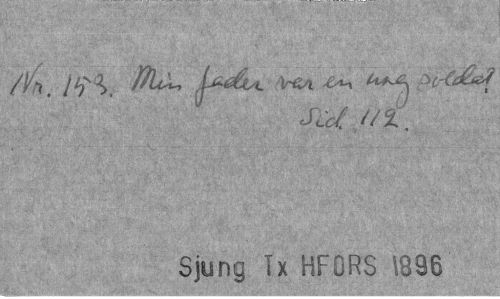 Nr. 153. Min fader var en ung soldat
Sid. 112.
Sjung Tx HFORS 1896